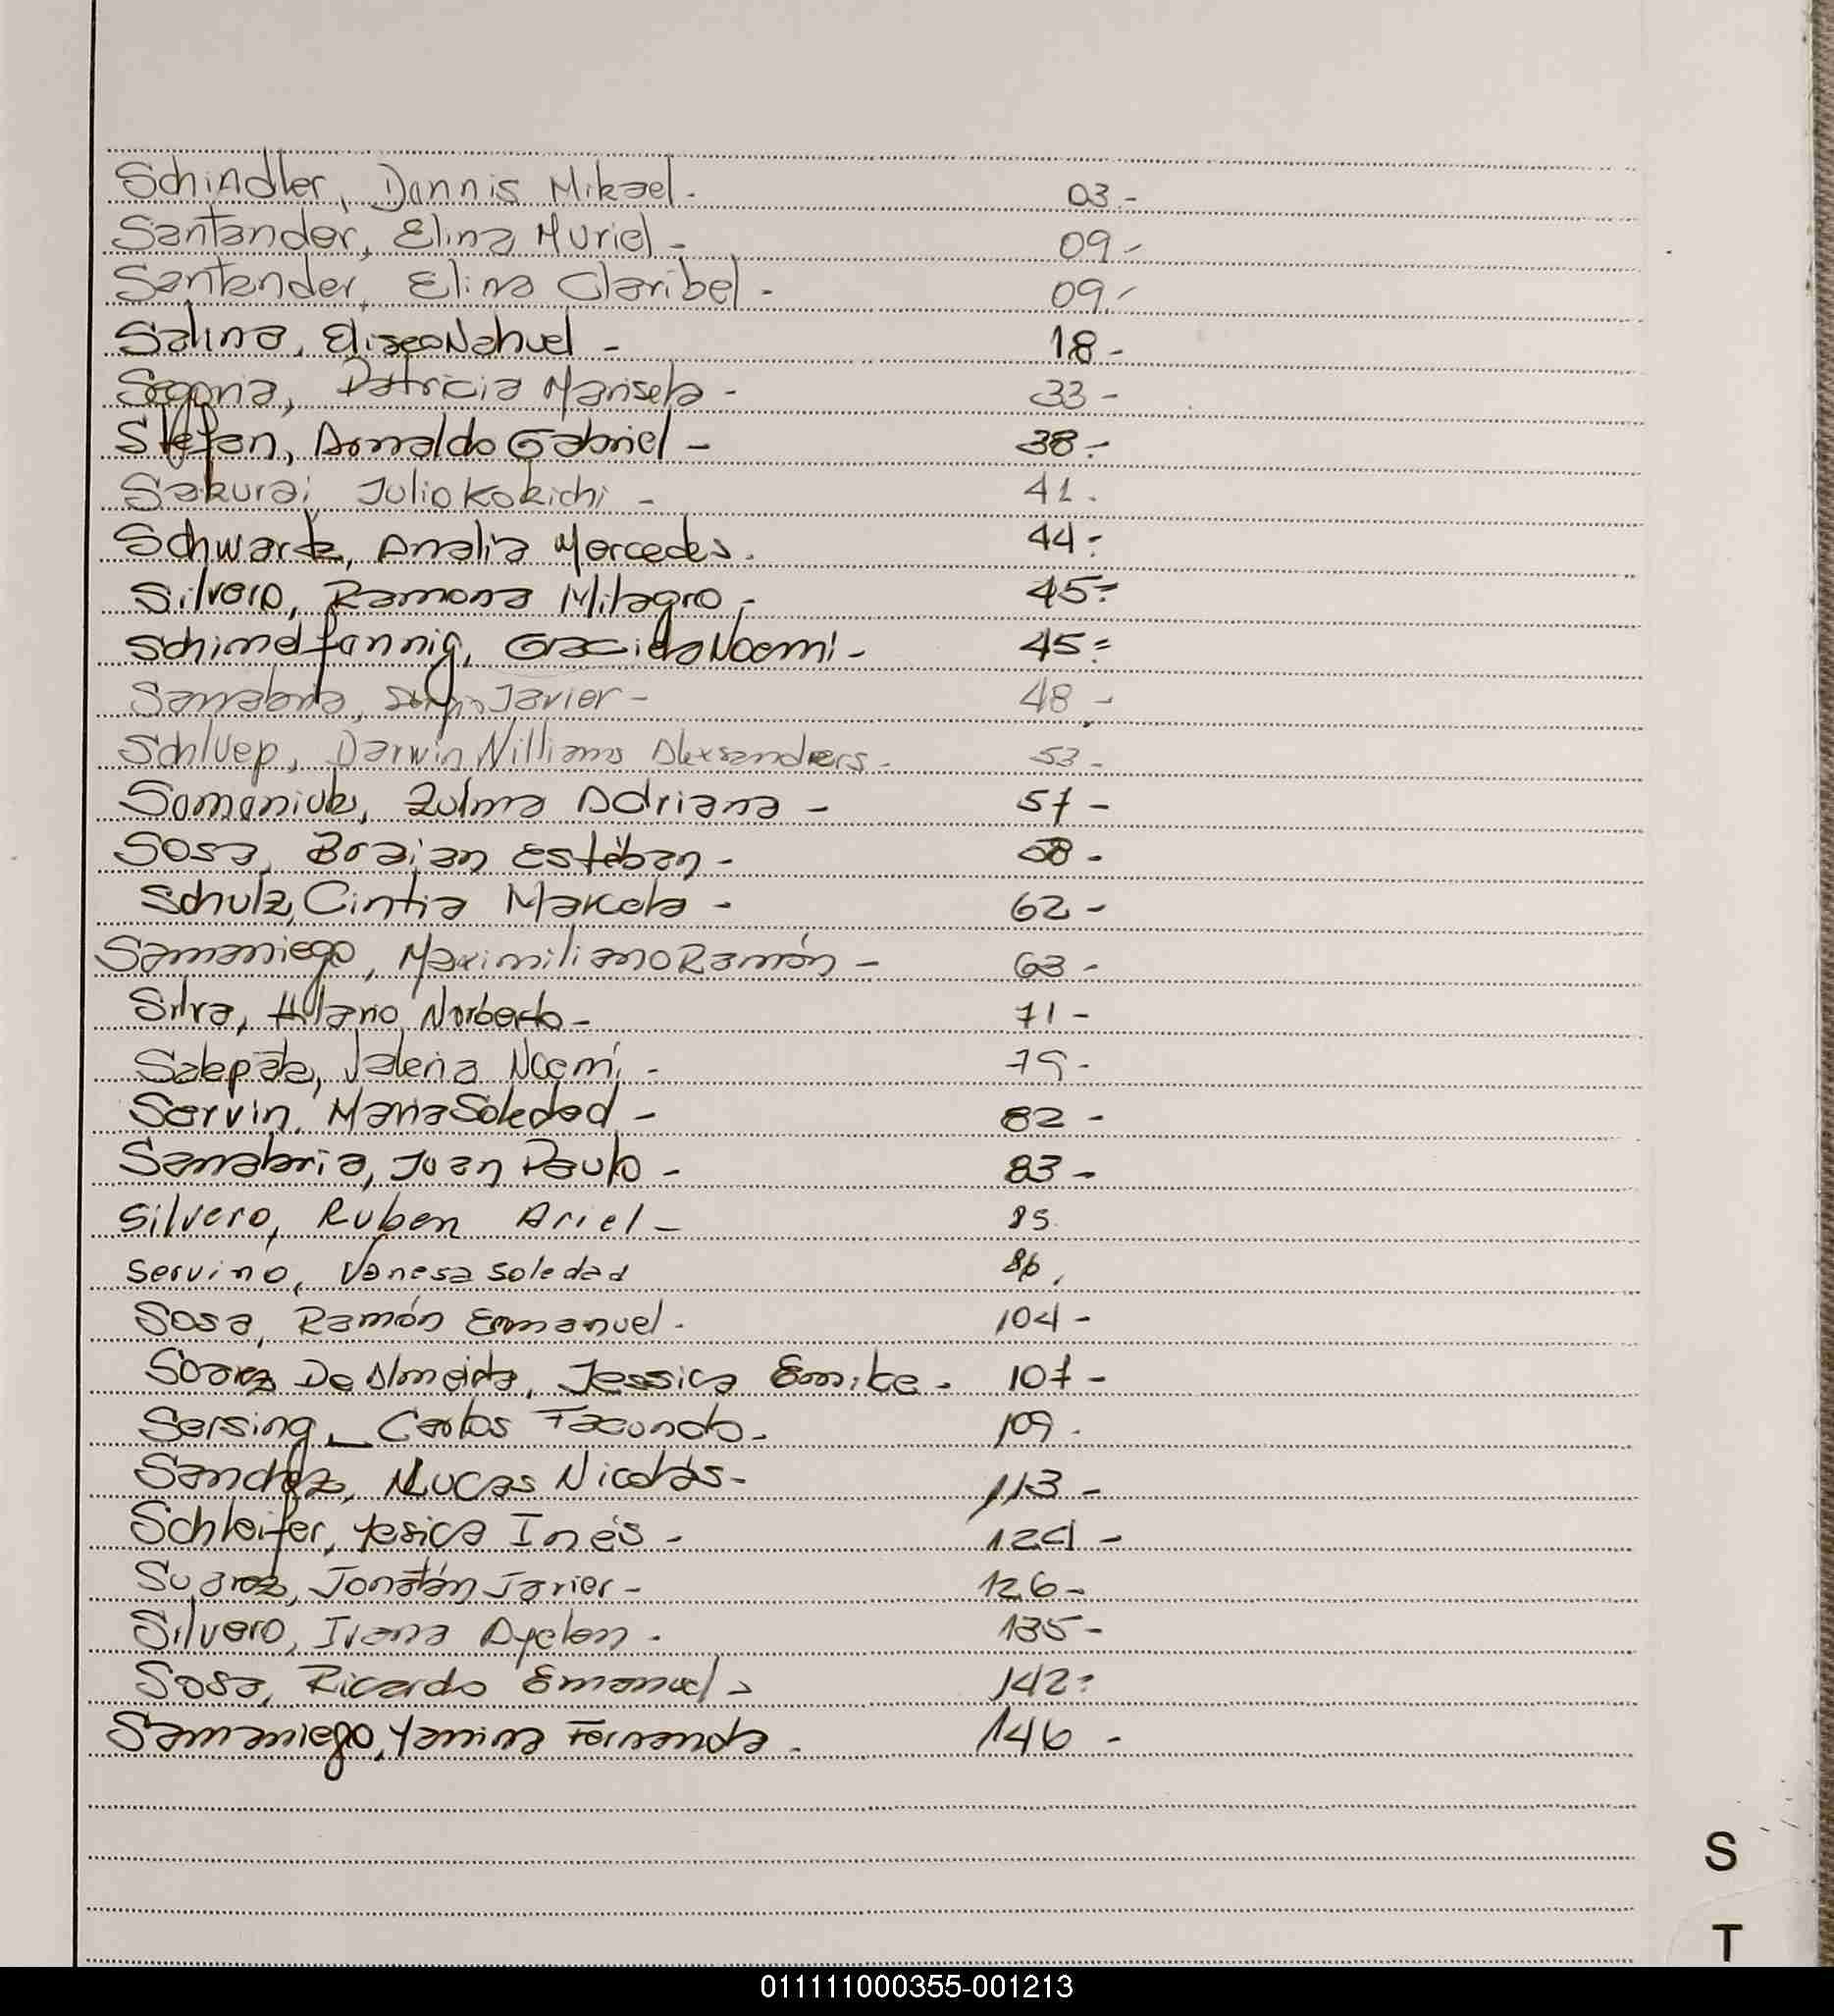 Schindler, Dannis Mikael. 03.-
Santander, Elina Muriel - 09.-
Santander, Elina Claribel - 09.-
Salina, Eliseo Nahuel - 18.-
Segovia, Patricia Marisela - 33-
Stefan, Arnaldo Gabriel - 38.-
Sakurai, Julio Kokichi - 41.
Schwartz, Analia Mercedes. 44.-
Silvero, Ramona Milagro.- 45.-
Schimelfannig, Graciela Noemi - 45.-
Sanabria, Sergio Javier - 48 -
Schluep, Darwin Williams Alexsanders. 53-
Somaniuk, Zulma Adriana - 57-
Sosa, Braian Estéban - 58-
Schulz, Cintia Marcela - 62-
Samaniego, Maximiliano Ramón - 63-
Silva, Hilario Norberto - 71-
Noemí - 75-
Servin, Maria Soledad - 82-
Sanabria, Juan Paulo - 83-
Silvero, Ruben Ariel - 85.
Servino, Vanesa Soledad 86.
Sosa, Ramón Emmanuel. 104-
Soarez De Almeida, Jessica 107-
Sersing, Carlos Facundo. 109.
Sanchez, Lucas Nicolás- 113-
Schleifer, Yesica Inés - 124-
Suarez, Jonatán Javier - 126-
Silvero, Ivana Ayelen - 135-
Sosa, Ricardo Emanuel - 142-
Samaniego, Yanina Fernanda. 146 -
S
T
011111000355-001213